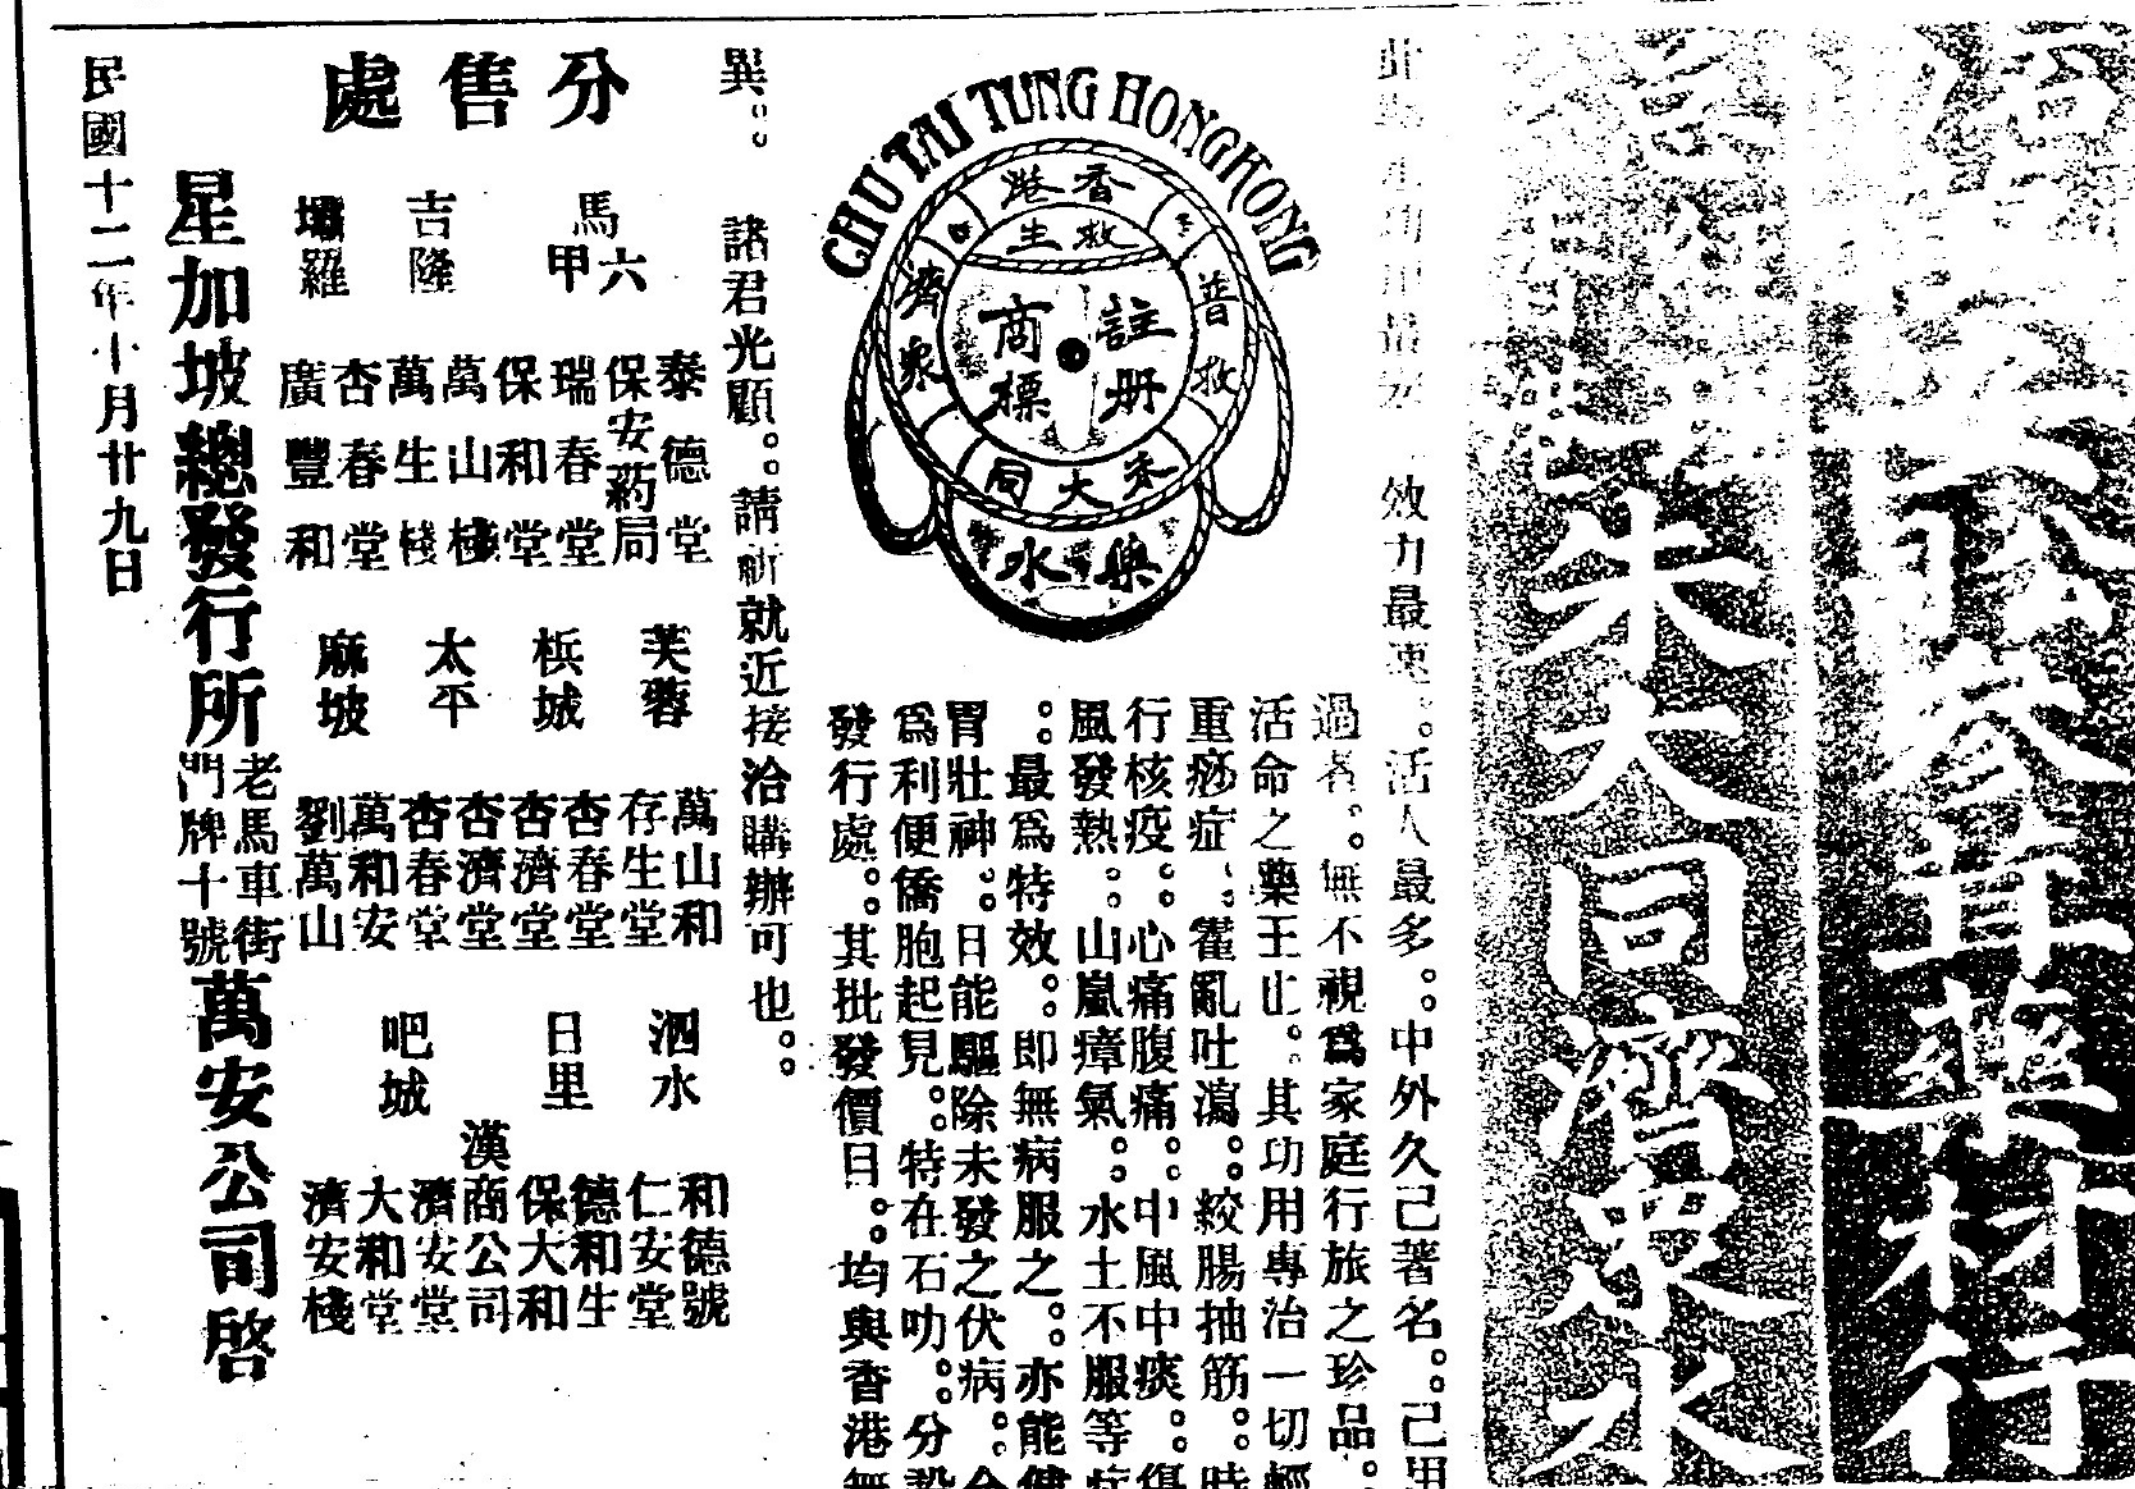 參茸藥材行
朱大同濟衆水
效力最速。活人最多。中外久己著名。己用
過者。無不視爲家庭行旅之珍品。
活命之藥王也。其功用專治一切輕
重痧症。霍亂吐瀉。絞腸抽筋。時
行核疫。心痛腹痛。中風中痰。傷
風發熱。山嵐瘴氣。水土不服等症
。最爲特效。即無病服之。亦能健
胃壯神。日能驅除未發之伏病。今
爲利便僑胞起見。特在石叻。分設
發行處。其批發價目。均與香港無
異。諸君光顧。請祈就近接洽購辦可也。
CHU TAI TUNG HONGKONG
香港
救生
普救
濟衆
註册
商標
朱大同
藥水
分售處
馬六甲
泰德堂
保安葯局
瑞春堂
保和堂
吉隆
萬山棧
萬生棧
壩羅
杏春堂
廣豐和
芙蓉
萬山和
存生堂
梹城
杏春堂
杏濟堂
太平
杏濟堂
杏春堂
麻坡
萬和安
劉萬山
泗水
和德號
仁安堂
日里
德和生
保大和
漢商公司
吧城
濟安堂
大和堂
濟安棧
星加坡總發行所
老馬車街
門牌十號
萬安公司啓
民國十二年十月廿九日